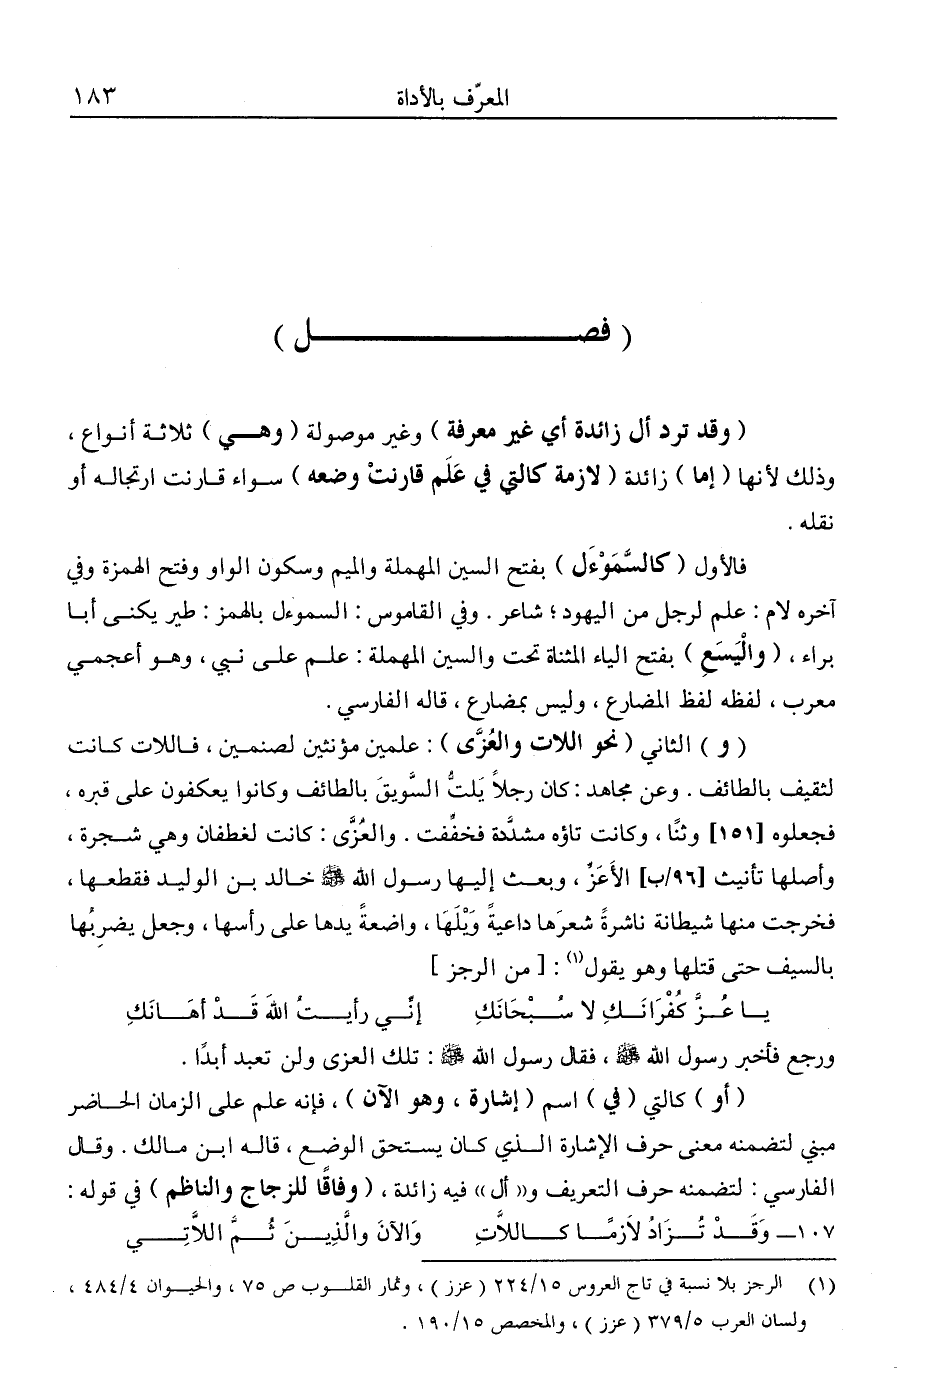 المعرّف بالأداة ١٨٣
( فصـــــل )
( وقد ترد أل زائدة أي غير معرفة ) وغير موصولة ( وهـــي ) ثلاثـة أنـواع ،
وذلك لأنها ( إما ) زائدة ( لازمة كالتي في عَلَم قارنتْ وضعه ) سـواء قـارنت ارتجالـه أو
نقله .
فالأول ( كالسَّمَوْءَل ) بفتح السين المهملة والميم وسكون الواو وفتح الهمزة وفي
آخره لام : علم لرجل من اليهود ؛ شاعر . وفي القاموس : السموءل بالهمز : طير يكنـى أبـا
براء ، ( والْيَسَعِ ) بفتح الياء المثناة تحت والسين المهملة : علـم علـى نـبي ، وهـو أعجمـي
معرب ، لفظه لفظ المضارع ، وليس بمضارع ، قاله الفارسي .
( و ) الثاني ( نحو اللات والعُزَّى ) : علمين مؤنثين لصنمـين ، فـاللات كـانت
لثقيف بالطائف . وعن مجاهد : كان رجلاً يَلتُّ السَّويقَ بالطائف وكانوا يعكفون على قبره ،
فجعلوه [١٥١] وثنًا ، وكانت تاؤه مشدَّدة فخفِّفت . والعُزَّى : كانت لغطفان وهي شـجرة ،
وأصلها تأنيث [٩٦/ب] الأَعَزِّ ، وبعـث إليهـا رسـول الله ﷺ خـالد بـن الوليـد فقطعهـا ،
فخرجت منها شيطانة ناشرةً شعرَها داعيةً وَيْلَهَا ، واضعةً يدها على رأسها ، وجعل يضربُها
بالسيف حتى قتلها وهو يقول(١) : [ من الرجز ]
يـا عُـزَّ كُفْرَانَـكِ لا سُـبْحَانَكِ إنِّـي رأيـتُ اللهَ قَـدْ أهَـانَكِ
ورجع فأخبر رسول الله ﷺ ، فقال رسول الله ﷺ : تلك العزى ولن تعبد أبدًا .
( أو ) كالتي ( في ) اسم ( إشارة ، وهو الآن ) ، فإنه علم على الزمان الحـاضر
مبني لتضمنه معنى حرف الإشارة الـذي كـان يسـتحق الوضـع ، قالـه ابـن مـالك . وقـال
الفارسي : لتضمنه حرف التعريف و« أل» فيه زائدة ، ( وفاقًا للزجاج والناظم ) في قوله :
١٠٧ــ وَقَـدْ تُـزَادُ لاَزمًـا كـاللاَّتِ وَالآنَ والَّذِيـنَ ثُـمَّ اللاَّتِـي
(١) الرجز بلا نسبة في تاج العروس ٢٢٤/١٥ ( عزز ) ، وثمار القلـوب ص ٧٥ ، والحيـوان ٤٨٤/٤ ،
ولسان العرب ٣٧٩/٥ ( عزز ) ، والمخصص ١٩٠/١٥ .